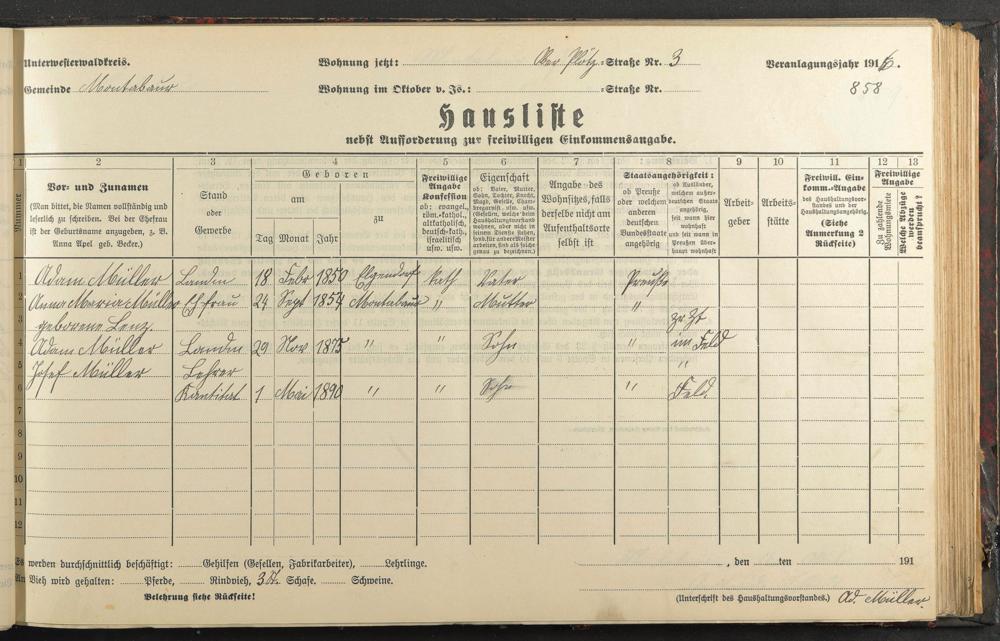 Unterwesterwaldkreis. Wohnung jetzt: Ober Plötz-Straße Nr. 3 Veranlagungsjahr 1916.
Gemeinde Montabaur Wohnung im Oktober v. Js.: -Straße Nr. 858
Hausliste
nebst Aufforderung zur freiwilligen Einkommensangabe.
1 2 3 4 5 6 7 8 9 10 11 12 13
Nummer
Vor- und Zunamen
(Man bittet, die Namen vollständig und
leserlich zu schreiben. Bei der Ehefrau
ist der Geburtsname anzugeben, z. B.
Anna Apel geb. Becker.)
Stand
oder
Gewerbe
Geboren
am
Tag Monat Jahr
zu
Freiwillige
Angabe
Konfession
ob: evangel.,
röm.-kathol.,
altkatholisch,
deutsch-kath.,
israelitisch
usw. usw.
Eigenschaft
ob: Vater, Mutter,
Sohn, Tochter, Knecht,
Magd, Geselle,
Angabe des
Wohnsitzes, falls
derselbe nicht am
Aufenthaltsorte
selbst ist
Staatsangehörigkeit:
ob Preuße
oder welchem
anderen
deutschen
Bundesstaat
angehörig
ob Ausländer,
welchem außer-
deutschen Staate
angehörig,
seit wann hier
wohnhaft
und seit wann in
Preußen über-
haupt wohnhaft
Arbeit-
geber
Arbeits-
stätte
Freiwill. Ein-
komm.-Angabe
des Haushaltungsvor-
standes und der
Haushaltungsangehörig.
(Siehe
Anmerkung 2
Rückseite)
Freiwillige
Angabe
Zu zahlende
Wohnungsmiete
Welche Abzüge
werden
beansprucht?
1 Adam Müller Landm 18 Febr 1850 Elgendorf kath Vater Preuße
2 Anna Maria Müller Ehfrau 24 Sept 1854 Montabaur " Mutter "
3 geborene Lenz. zr Zt
4 Adam Müller Landm 29 Nov 1875 " " Sohn " im Feld
5 Josef Müller Lehrer "
6 Kantitat 1 Mai 1890 " " Sohn " Feld.
7
8
9
10
11
12
Es werden durchschnittlich beschäftigt: Gehilfen (Gesellen, Fabrikarbeiter), Lehrlinge. , den ten 191
An Vieh wird gehalten: Pferde, Rindvieh, 3 St. Schafe. Schweine.
Belehrung siehe Rückseite! (Unterschrift des Haushaltungsvorstandes.) Ad. Müller.